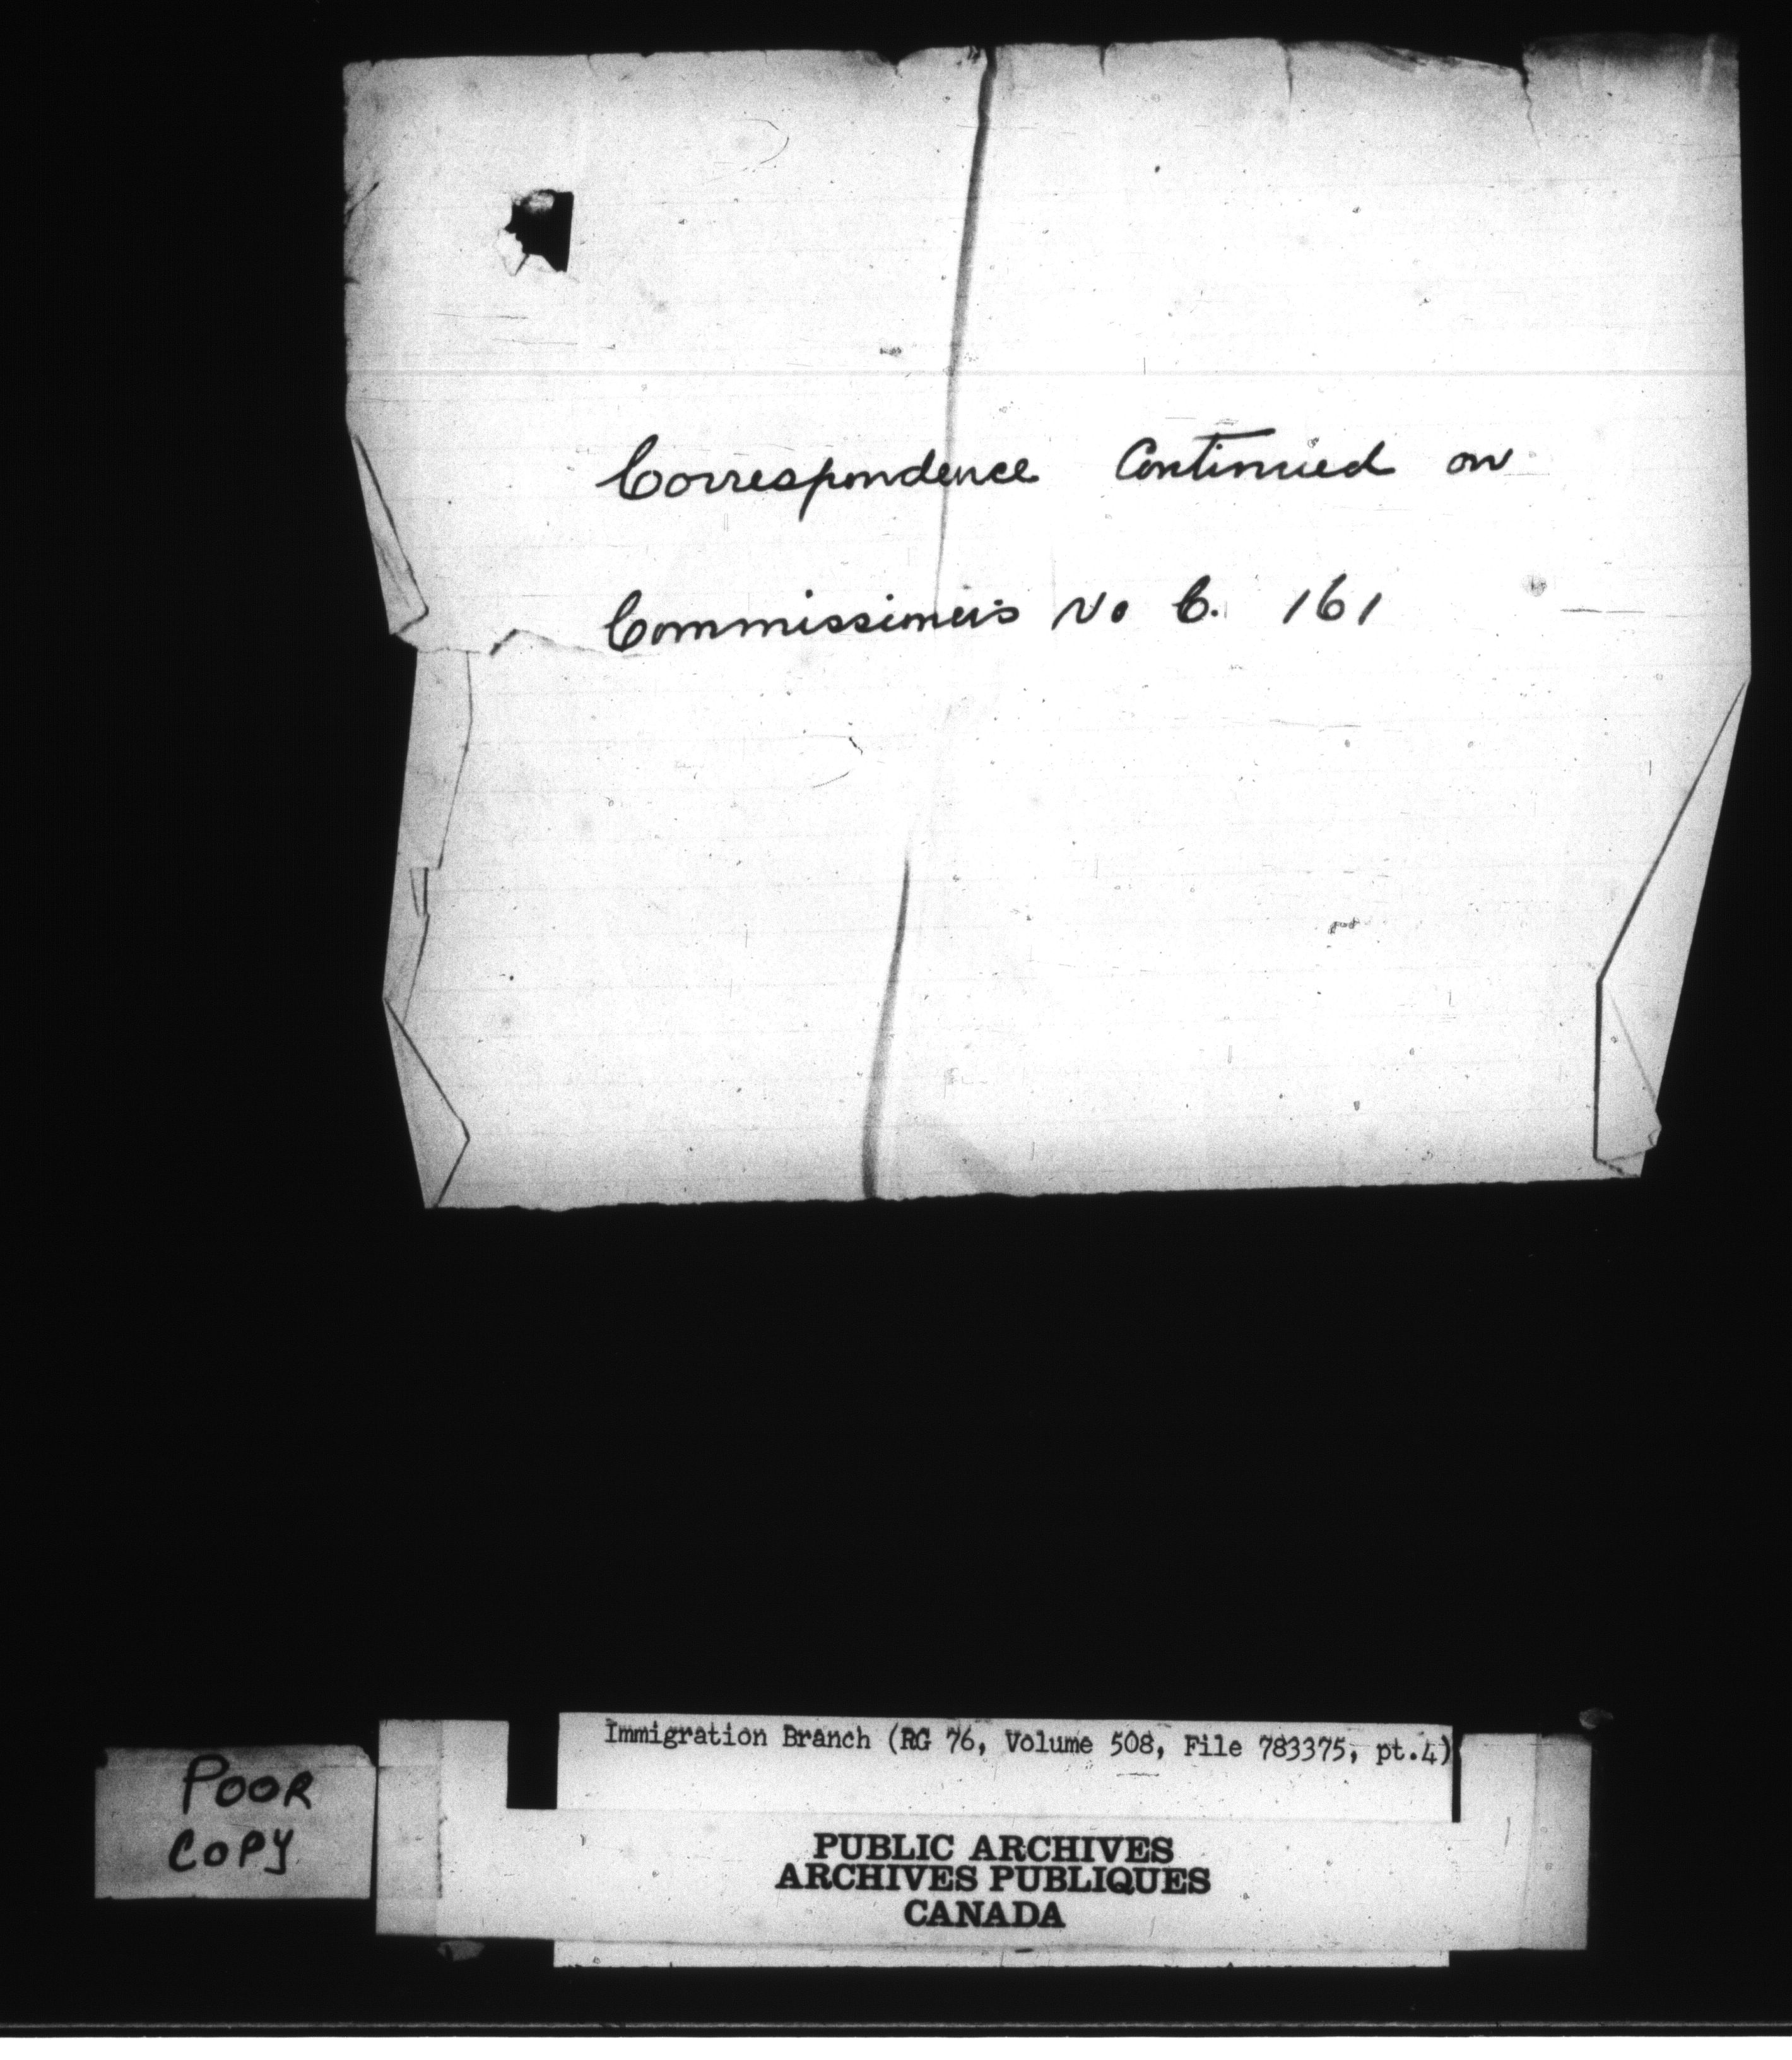 Correspondence Continued on
Commissioners No C. 161
Immigration Branch (RG 76, Volume 508, File 783375, pt.4)
POOR
COPY
PUBLIC ARCHIVES
ARCHIVES PUBLIQUES
CANADA